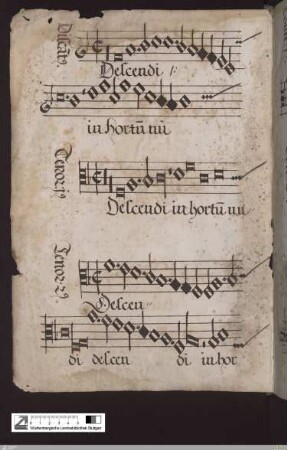 Discãt9.
Descendi /:
in hortũ nũ
Tenor j9
Descendi in hortũ nũ
Tenor 29.
Descen
di descen di in hor
Württembergische Landesbibliothek Stuttgart